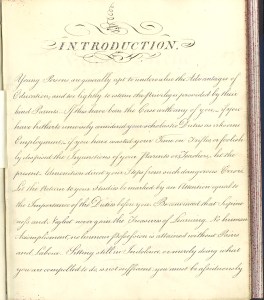 INTRODUCTION.
Young Persons are generally apt to undervalue the Advantages of
Education, and too lightly to esteem the privileges presented by their
kind Parents. If this have been the Case with any of you — if you
have hitherto considered your scholastic Duties as irksome
Employments, if you have wasted your Time on Trifles, or foolish
ly despised the Injunctions of your Parents or Teachers, let the
present Admonition direct your Steps from such dangerous Errors.
Let the Return to your Studies be marked by an Attention equal to
the Importance of the Duties before you. Be assured that Supine
ness and Neglect never gain the Treasures of Learning. No human
Accomplishment, no human perfection is attained without Pains
and Labour. Sitting still in Indolence, or merely doing what
you are compelled to do, is not sufficient; you must be